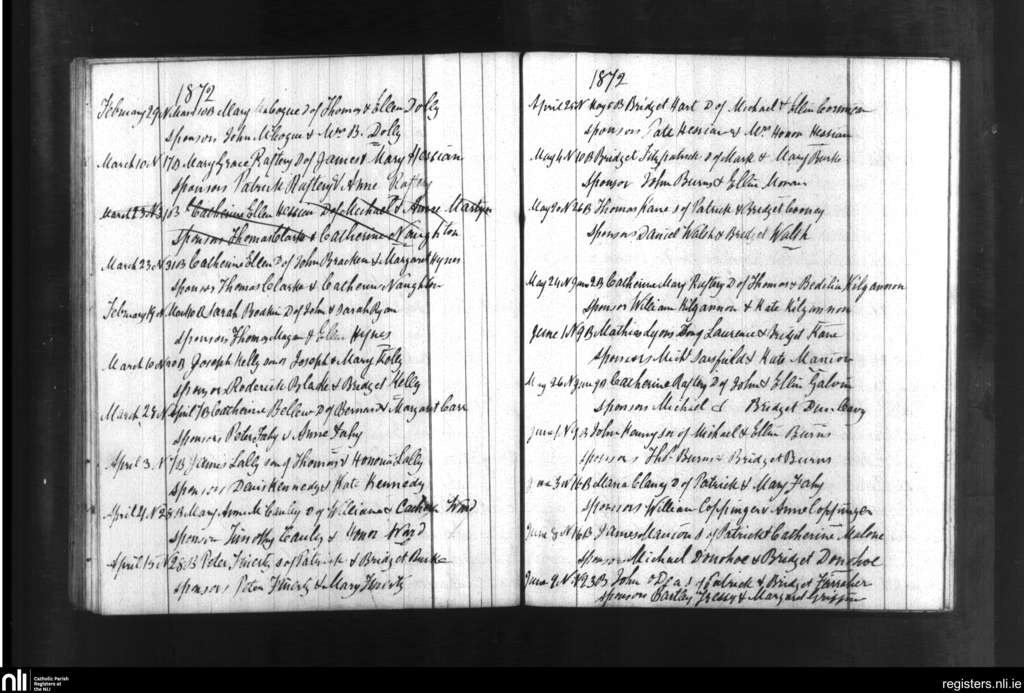 1872
February 29 N March 10 B Mary McCogue D of Thomas & Ellen Dolly
Sponsors John McCogue & Mrs B. Dolly
March 10 N 17 B Mary Grace Raftery D of James & Mary Hessian
Sponsors Patrick Raftery & Anne Raftery
March 23 N 31 B Catherine Ellen Hession D of Michael & Anne Martyn
Sponsors Thomas Clarke & Catherine Naughton
March 23 N 31 B Catherine Ellen D of John Bracken & Margaret Hynes
Sponsors Thomas Clarke & Catherine Naughton
February N March Sarah Bodkin D of John & Sarah Ryan
Sponsors Thomas & Ellen Hynes
March 10 N B Joseph Kelly son of Joseph & Mary Kelly
Sponsor Roderick Blake & Bridget Kelly
March 28 N April 7 B Catherine Bellew D of Bernard & Margaret Carr
Sponsors Peter Fahy & Anne Fahy
April 3 N 7 B James Lally son of Thomas & Honoria Lally
Sponsors Denis Kennedy & Kate Kennedy
April 21 N 28 B Mary Anne McCauley D of William & Catherine Ward
Sponsor Timothy Cauley & Honor Ward
April 15 N 28 B Peter Finerty s of Patrick & Bridget Burke
Sponsors Peter Finerty & Mary Finerty
1872
April 24 N May 5 B Bridget Hart D of Michael & Ellen
Sponsors Pate Hessian & Mrs Honor Hessian
May 4 N 10 B Bridget Fitzpatrick D of Mark & Mary Burke
Sponsor John Burns & Ellen Moran
May 20 N 26 B Thomas Kane s of Patrick & Bridget Cooney
Sponsors Daniel Walsh & Bridget Walsh
May 24 N June 2 B Catherine Mary Raftery D of Thomas & Bedelia Kilgannon
Sponsor William Kilgannon & Kate Kilgannon
June 1 N 9 B Mathias Lyons son of Laurence & Bridget Kane
Sponsors Michl Sarsfield & Kate Mannion
May 26 N June 9 B Catherine Raftery D of John & Ellen Galvin
Sponsors Michael & Bridget Dunleavy
June 1 N 9 B John Kenny son of Michael & Ellen Burns
Sponsors Thos Burns & Bridget Burns
June 3 N 16 B Clancy D of Patrick & Mary Fahy
Sponsors William Coppinger & Anne Coppinger
June 8 N 16 B James Mannion s of Patrick & Catherine Malone
Sponsor Michael Donohoe & Bridget Donohoe
June 9 N 23 B John s of Patrick & Bridget
Sponsors & Margaret Griffin
nli
Catholic Parish
Registers at
the NLI
registers.nli.ie